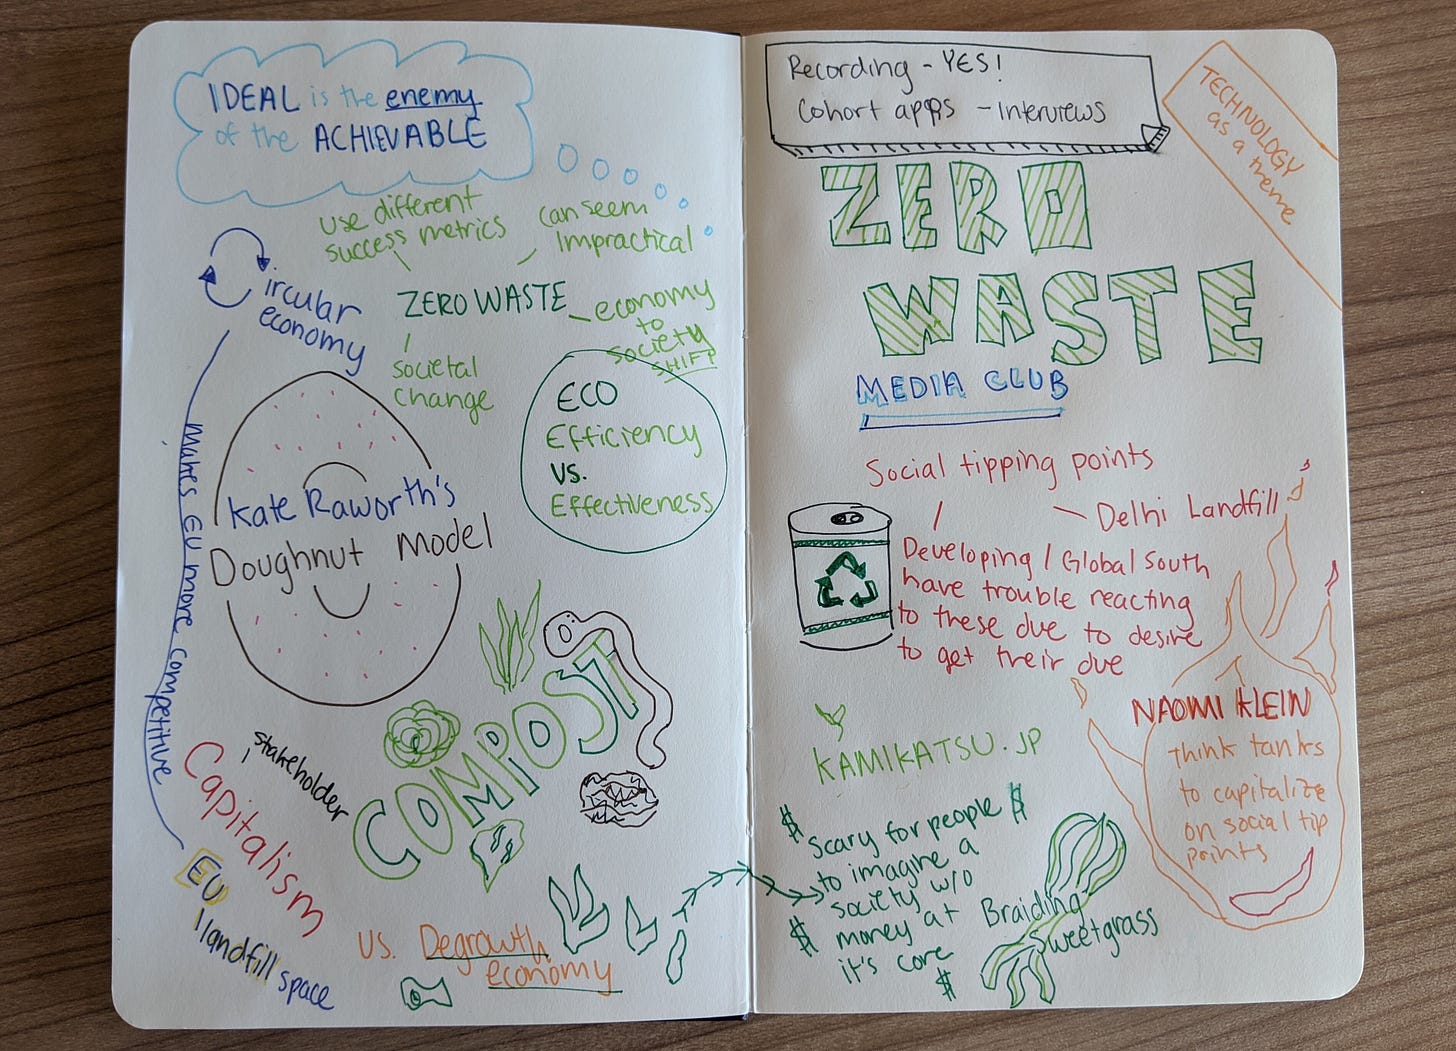 IDEAL is the enemy
of the ACHIEVABLE
use different
success metrics
can seem
Impractical
ZERO WASTE
economy
to
society
SHIFT
societal
change
circular
economy
Makes EU more competitive
EU
landfill space
Kate Raworth's
Doughnut Model
ECO
Efficiency
vs.
Effectiveness
COMPOST
stakeholder
Capitalism
vs. Degrowth
economy
Recording - YES!
Cohort apps - Interviews
TECHNOLOGY
as a theme
ZERO
WASTE
MEDIA CLUB
Social tipping points
Delhi Landfill
Developing / Global South
have trouble reacting
to these due to desire
to get their due
KAMIKATSU.JP
NAOMI KLEIN
think tanks
to capitalize
on social tip
points
$ Scary for people $
to imagine a
society w/o
$ money at
it's core
$
Braiding
Sweetgrass